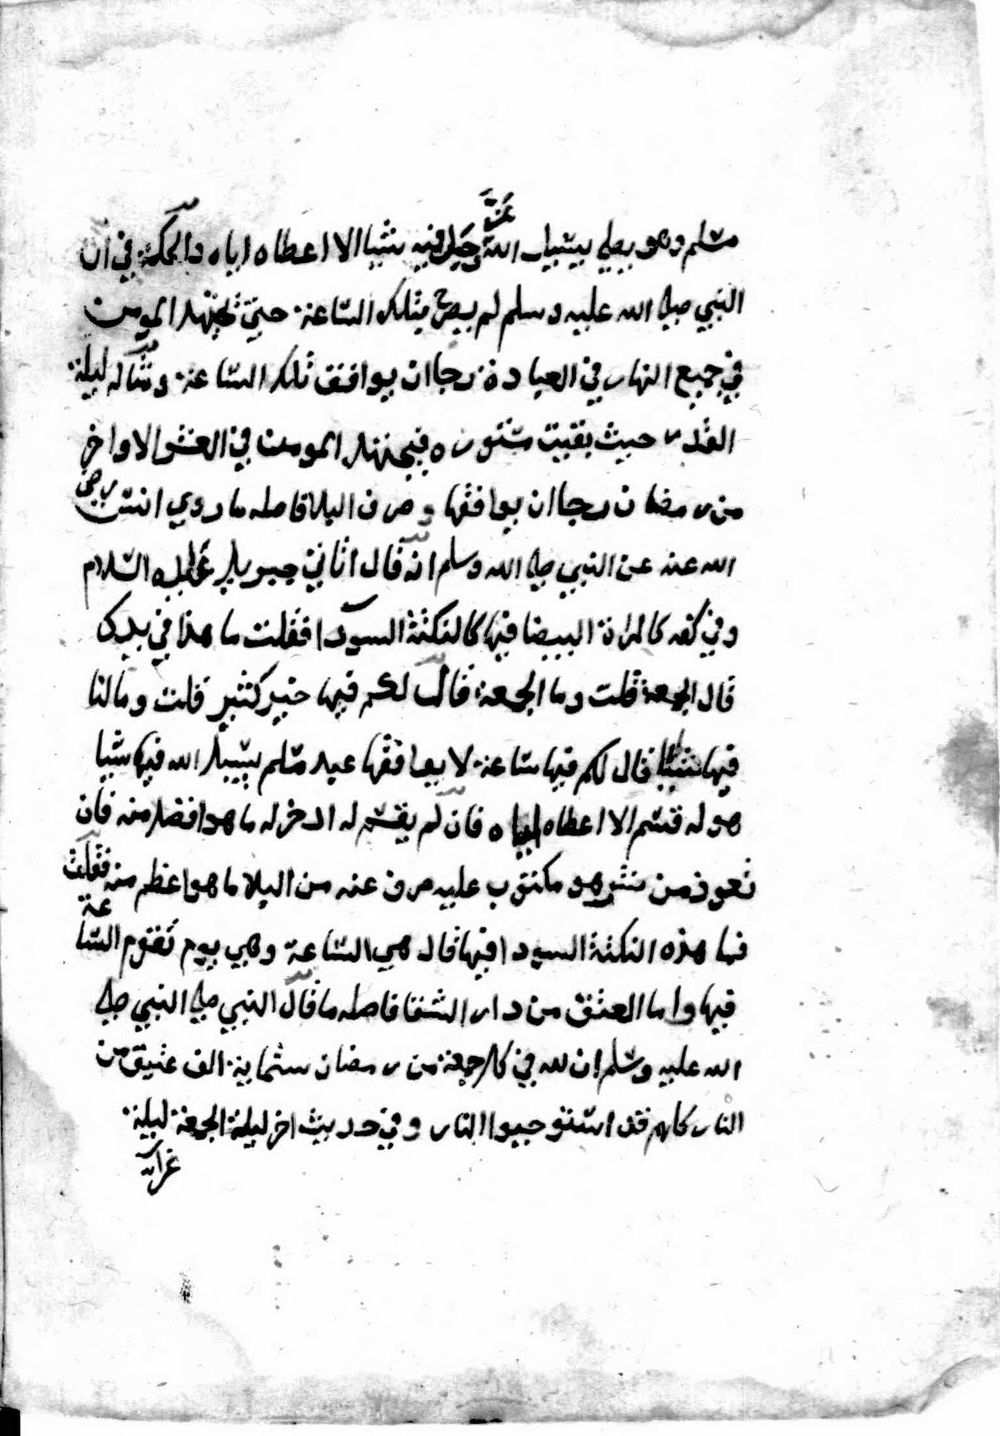 مسلم وهو يصلي يسيل الله عز وجل فيه شيا الا اعطاه اياه والحكمة في ان
النبي صلى الله عليه وسلم لم يصرح بتلك الساعة حتي يجتهد المومن
في جميع النهار في العبادة رجا ان يوافق تلك الساعة ومثاله ليلة
القدر حيث بقيت مستوره فيجتهد المومن في العشر الاواخر
من رمضان رجا ان يوافقها وصرف البلا فاصله ما روي انس رضي
الله عنه عن النبي صلى الله وسلم انه قال اتاني جبريل عليه السلام
وفي كفه كالمراة البيضا فيها كالنكتة السودا فقلت ما هذا في يدك
قال الجمعة قلت وما الجمعة قال لكم فيها خير كثير قلت وما لنا
فيها قال لكم فيها ساعة لا يوافقها عبد مسلم يسيل الله فيها شيا
هو له قسم الا اعطاه اياه فان لم يقسم له ادخر له ما هو افضل منه فان
تعوذ من شر هو مكتوب عليه صرف عنه من البلا ما هو اعظم منه فقلت
فما هذه النكتة السودا فيها قال هي الساعة وهي يوم تقوم الساعة
فيها واما العتق من دار الشقا فاصله ما قال النبي صلى النبي صلى
الله عليه وسلم ان لله في كل جمعة من رمضان ستماية الف عتيق من
النار كلهم قد استوجبوا النار وفي حديث اخر ليلة الجمعة ليلة
غرا